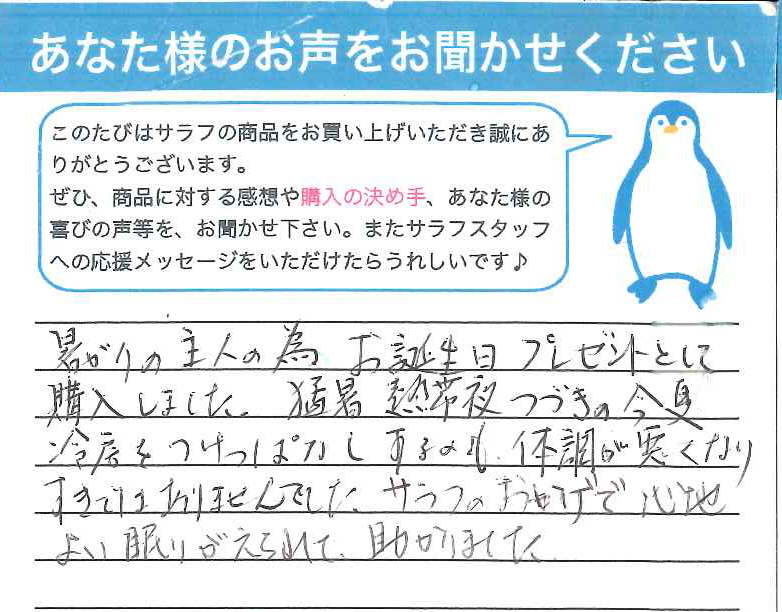 あなた様のお声をお聞かせください
このたびはサラフの商品をお買い上げいただき誠にあ
りがとうございます。
ぜひ、商品に対する感想や購入の決め手、あなた様の
喜びの声等を、お聞かせ下さい。またサラフスタッフ
への応援メッセージをいただけたらうれしいです♪
暑がりの主人の為 お誕生日プレゼントとして
購入しました。猛暑 熱帯夜つづきの今夏
冷房をつけっぱなしするのも、体調が悪くなり
すきではありませんでした。サラフのおかげで心地
よい眠りがえられて、助かりました。